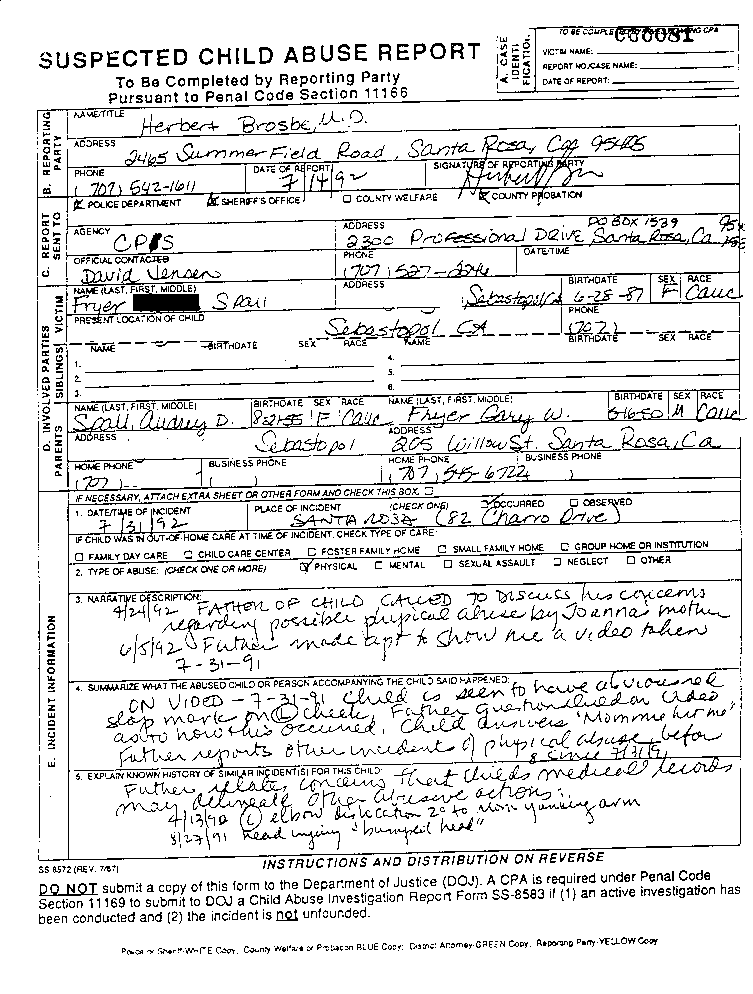 TO BE COMPLETED BY INVESTIGATING CPA
000081
SUSPECTED CHILD ABUSE REPORT
To Be Completed by Reporting Party
Pursuant to Penal Code Section 11166
A. CASE IDENTIFICATION
VICTIM NAME:
REPORT NO./CASE NAME:
DATE OF REPORT:
B. REPORTING PARTY
NAME/TITLE
Herbert Brosbe, M.D.
ADDRESS
2465 Summerfield Road, Santa Rosa, Ca 95405
PHONE DATE OF REPORT SIGNATURE OF REPORTING PARTY
(707) 542-1611 7/14/92
C. REPORT SENT TO
POLICE DEPARTMENT SHERIFF'S OFFICE COUNTY WELFARE COUNTY PROBATION
AGENCY ADDRESS PO BOX 1539
CPS 2300 Professional DRIVE Santa Rosa, Ca
OFFICIAL CONTACTED PHONE DATE/TIME
David Jensen (707) 527-2246
D. INVOLVED PARTIES
VICTIM
NAME (LAST, FIRST, MIDDLE) ADDRESS BIRTHDATE SEX RACE
Fryer Scall Sebastopol Ca 6-28-87 F Cauc
PRESENT LOCATION OF CHILD PHONE
Sebastopol CA (707)
SIBLINGS
NAME BIRTHDATE SEX RACE NAME BIRTHDATE SEX RACE
1. 4.
2. 5.
3. 6.
PARENTS
NAME (LAST, FIRST, MIDDLE) BIRTHDATE SEX RACE NAME (LAST, FIRST, MIDDLE) BIRTHDATE SEX RACE
Scall, Audrey D. 8-21-55 F Cauc Fryer Gary W. 6-16-50 M Cauc
ADDRESS ADDRESS
Sebastopol 205 Willow St. Santa Rosa, Ca
HOME PHONE BUSINESS PHONE HOME PHONE BUSINESS PHONE
(707) ( ) (707) 545-6722 ( )
E. INCIDENT INFORMATION
IF NECESSARY, ATTACH EXTRA SHEET OR OTHER FORM AND CHECK THIS BOX.
1. DATE/TIME OF INCIDENT PLACE OF INCIDENT (CHECK ONE) OCCURRED OBSERVED
7/31/92 SANTA ROSA (82 Charro Drive)
IF CHILD WAS IN OUT-OF-HOME CARE AT TIME OF INCIDENT, CHECK TYPE OF CARE:
FAMILY DAY CARE CHILD CARE CENTER FOSTER FAMILY HOME SMALL FAMILY HOME GROUP HOME OR INSTITUTION
2. TYPE OF ABUSE: (CHECK ONE OR MORE) PHYSICAL MENTAL SEXUAL ASSAULT NEGLECT OTHER
3. NARRATIVE DESCRIPTION:
4/24/92 FATHER OF CHILD CALLED TO DISCUSS his concerns
regarding possible physical abuse by Joanna's mother
6/5/92 Father made apt to show me a video taken
7-31-91
4. SUMMARIZE WHAT THE ABUSED CHILD OR PERSON ACCOMPANYING THE CHILD SAID HAPPENED:
ON VIDEO - 7-31-91 Child is seen to have obvious red
slap mark on (L) cheek, Father questioned on video
as to how this occurred, Child answers "Mommie hit me"
Father reports other incidents of physical abuse before
& since 7/31/91
5. EXPLAIN KNOWN HISTORY OF SIMILAR INCIDENT(S) FOR THIS CHILD:
Father relates concerns that childs medical records
may delineate other abusive actions:
4/13/90 (L) elbow dislocation 2° to Mom yanking arm
8/27/91 head injury "bumped head"
SS 8572 (REV. 7/87)
INSTRUCTIONS AND DISTRIBUTION ON REVERSE
DO NOT submit a copy of this form to the Department of Justice (DOJ). A CPA is required under Penal Code
Section 11169 to submit to DOJ a Child Abuse Investigation Report Form SS-8583 if (1) an active investigation has
been conducted and (2) the incident is not unfounded.
Police or Sheriff-WHITE Copy; County Welfare or Probation BLUE Copy; District Attorney-GREEN Copy; Reporting Party-YELLOW Copy